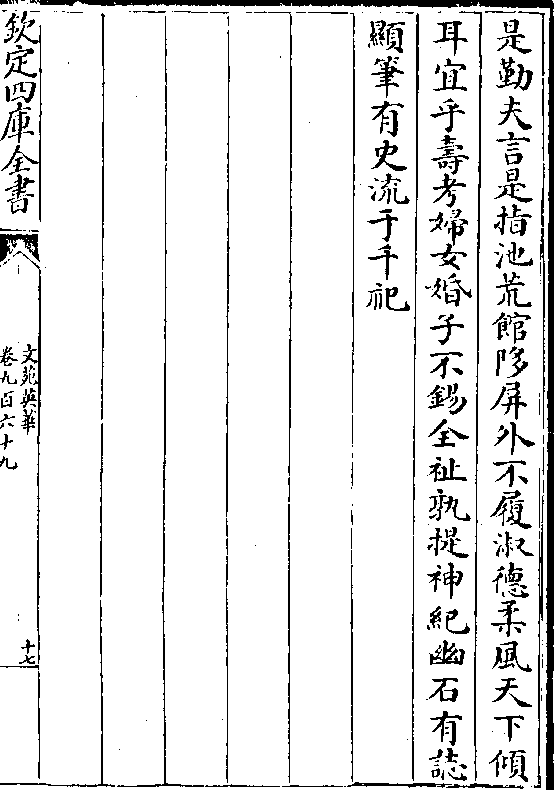 是勤夫言是指池荒館隊屏外不履淑德柔風天下傾
耳宜乎壽考婦女婚子不錫全祉孰提神紀幽石有誌
顯筆有史流于千祀
欽定四庫全書
文苑英華
卷九百六十九
十七